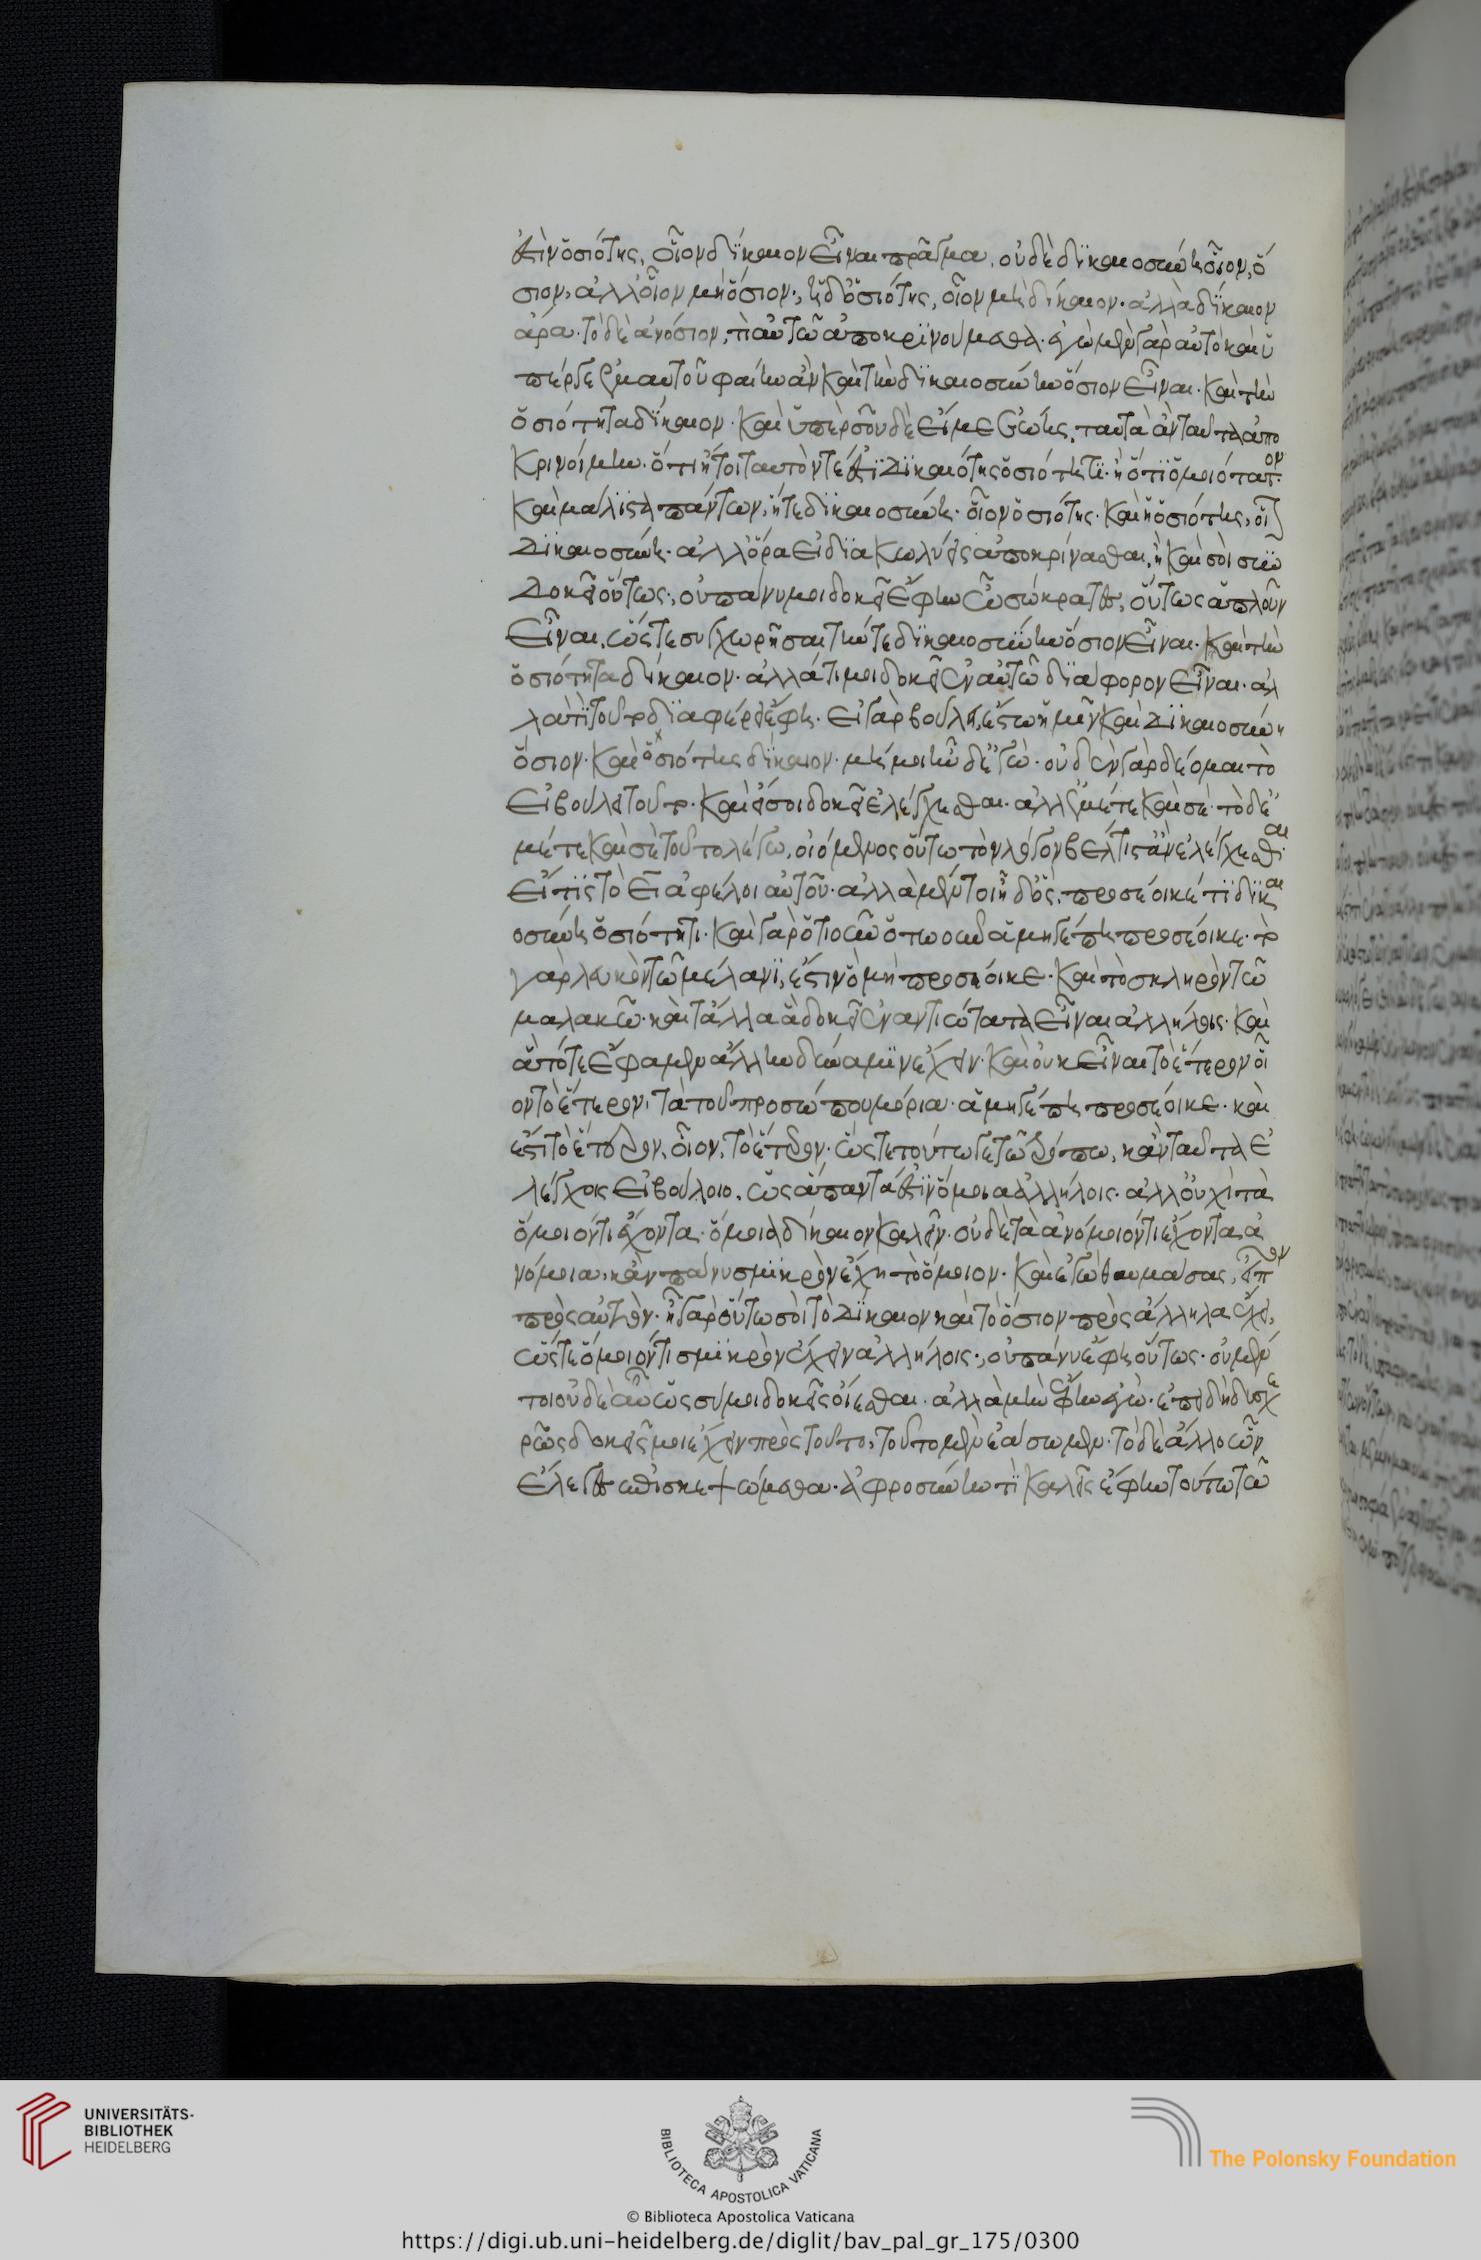 ἐστὶν ὁσιότης, οἷον δίκαιον εἶναι πρᾶγμα, οὐδὲ δικαιοσύνη οἷον, ὅ
σιον, ἀλλ' οἷον μὴ ὅσιον·, ἡ δ' ὁσιότης, οἷον μὴ δίκαιον· ἀλλὰ δίκαιον
ἄρα· τὸ δὲ ἀνόσιον, τί αὐτῷ ἀποκρινούμεθα· ἐγὼ μὲν γὰρ αὐτὸς καὶ ὑ
πέρ γε ἐμαυτοῦ φαίην ἂν καὶ τὴν δικαιοσύνην ὅσιον εἶναι· καὶ τὴν
ὁσιότητα δίκαιον· καὶ ὑπὲρ σοῦ δὲ εἴ με ἐῴης, ταυτὰ ἂν ταῦτα ἀπο
κρινοίμην· ὅτι ἤτοι ταυτόν τέ ἐστι δικαιότης ὁσιότητι· ἢ ὅτι ὁμοιότατον·
καὶ μάλιστα πάντων, ἥ τε δικαιοσύνη· οἷον ὁσιότης· καὶ ἡ ὁσιότης, οἷον
δικαιοσύνη· ἀλλ' ὅρα εἰ διακωλύεις ἀποκρίνασθαι, ἢ καὶ σοὶ συν
δοκεῖ οὕτως·, οὐ πάνυ μοι δοκεῖ ἔφη ὦ σώκρατες, οὕτως ἁπλοῦν
εἶναι, ὥστε συγχωρῆσαι τήν τε δικαιοσύνην ὅσιον εἶναι· καὶ τὴν
ὁσιότητα δίκαιον· ἀλλά τι μοι δοκεῖ ἐν αὐτῷ διάφορον εἶναι· ἀλ
λὰ τί τοῦτο διαφέρει ἔφη· εἰ γὰρ βούλει, ἔστω ἡμῖν καὶ δικαιοσύνη
ὅσιον· καὶ ὁσιότης δίκαιον· μή μοι ἦν δ' ἐγώ· οὐδὲν γὰρ δέομαι τὸ
εἰ βούλει τοῦτο· καὶ εἴ σοι δοκεῖ ἐλέγχεσθαι· ἀλλ' ἐμέ τε καὶ σέ· τὸ δ' ἐ
μέ τε καὶ σὲ τοῦτο λέγω, οἰόμενος οὕτω τὸν λόγον βέλτιστ' ἂν ἐλέγχεσθαι·
εἴ τις τὸ εἴ ἀφέλοι αὐτοῦ· ἀλλὰ μέντοι ἦ δ' ὅς, προσέοικέ τι δικαι
οσύνη ὁσιότητι· καὶ γὰρ ὁτιοῦν ὁτῳοῦν ἀμηγέπη προσέοικε· τὸ
γὰρ λευκὸν τῷ μέλανι, ἔστιν ὅμη προσέοικε· καὶ τὸ σκληρὸν τῷ
μαλακῷ· καὶ τἄλλα ἃ δοκεῖ ἐναντιώτατα εἶναι ἀλλήλοις· καὶ
ἃ τότε ἔφαμεν ἄλλην δύναμιν ἔχειν· καὶ οὐκ εἶναι τὸ ἕτερον οἷ
ον τὸ ἕτερον, τὰ τοῦ προσώπου μόρια· ἀμηγέπη προσέοικε· καὶ
ἔστι τὸ ἕτερον, οἷον, τὸ ἕτερον· ὥστε τούτῳ γε τῷ τρόπῳ, κἂν ταῦτα ἐ
λέγχοις εἰ βούλοιο, ὡς ἅπαντά ἐστιν ὅμοια ἀλλήλοις· ἀλλ' οὐχὶ τὰ
ὅμοιόν τι ἔχοντα· ὅμοια δίκαιον καλεῖν· οὐδὲ τὰ ἀνόμοιόν τι ἔχοντα, ἀ
νόμοια, κἂν πάνυ σμικρὸν ἔχῃ τὸ ὅμοιον· καὶ ἐγὼ θαυμάσας, εἶπον
πρὸς αὐτόν· ἦ γὰρ οὕτω σοὶ τὸ δίκαιον καὶ τὸ ὅσιον πρὸς ἄλληλα ἔχει,
ὥστε ὅμοιόν τι σμικρὸν ἔχειν ἀλλήλοις·, οὐ πάνυ ἔφη οὕτως· οὐ μέν
τοι οὐδὲ αὖ ὡς σύ μοι δοκεῖς οἴεσθαι· ἀλλὰ μὴν ἔφην ἐγώ· ἐπειδὴ δυσχε
ρῶς δοκεῖς μοι ἔχειν πρὸς τοῦτο, τοῦτο μὲν ἐάσωμεν· τὸ δὲ ἄλλο ὧν
ἔλεγες ἐπισκεψώμεθα· ἀφροσύνην τι καλεῖς ἔφην τούτῳ τῷ
UNIVERSITÄTS-
BIBLIOTHEK
HEIDELBERG
BIBLIOTECA APOSTOLICA VATICANA
The Polonsky Foundation
© Biblioteca Apostolica Vaticana
https://digi.ub.uni-heidelberg.de/diglit/bav_pal_gr_175/0300